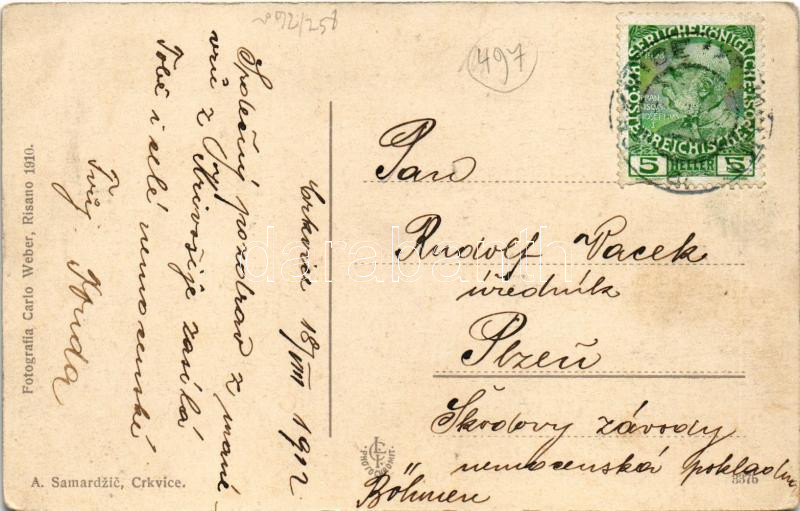 492/258
497
KAISERLICHE KÖNIGLICHE
ÖSTERREICHISCHE
5 HELLER 5
Pan
Rudolf Vacek
úředník
Plzeň
Škodovy závody
nemocenská pokladna
Böhmen
Crkvice 18/VIII 1912
Společný pozdrav z
z Krivošije zasílá
Tobě i celé nemocenské
Tvůj
Fotografia Carlo Weber, Risano 1910.
A. Samardžič, Crkvice.
PHOTOCHROMIT
3376
darabanth